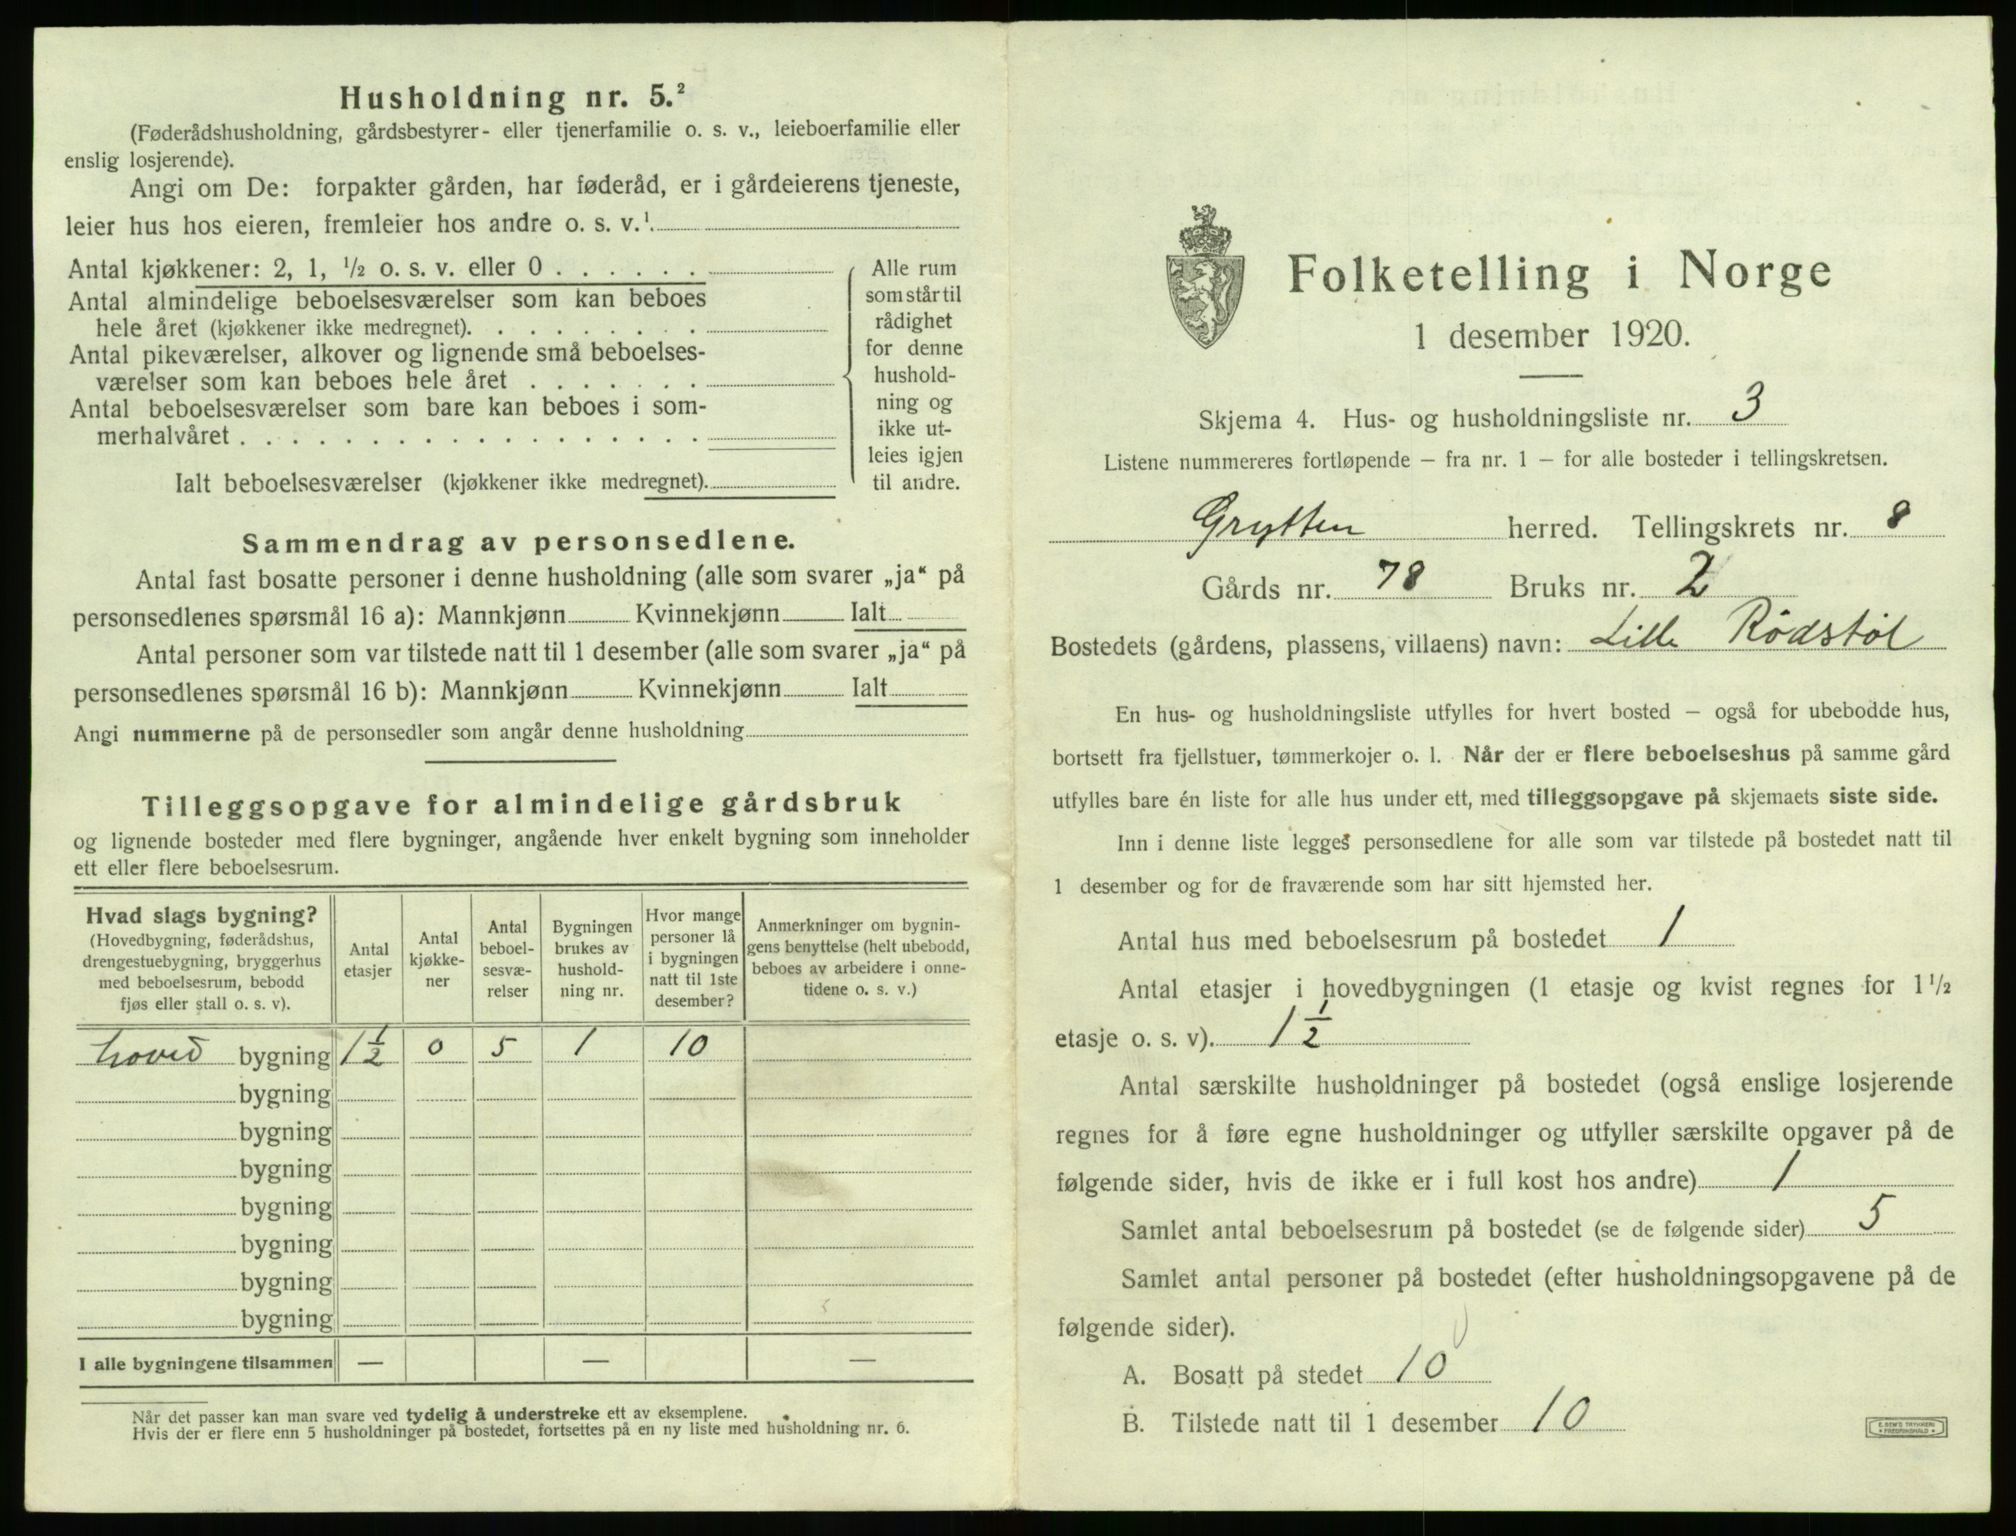 Husholdning nr. 5.²
(Føderådshusholdning, gårdsbestyrer- eller tjenerfamilie o. s. v., leieboerfamilie eller
enslig losjerende).
Angi om De: forpakter gården, har føderåd, er i gårdeierens tjeneste,
leier hus hos eieren, fremleier hos andre o. s. v.¹
Antal kjøkkener: 2, 1, ½ o. s. v. eller 0 . . . . . .
Antal almindelige beboelsesværelser som kan beboes
hele året (kjøkkener ikke medregnet). . . . . . . . .
Antal pikeværelser, alkover og lignende små beboelses-
værelser som kan beboes hele året . . . . . . .
Antal beboelsesværelser som bare kan beboes i som-
merhalvåret . . . . . . . . . . . . . . . . . .
Ialt beboelsesværelser (kjøkkener ikke medregnet).
Alle rum
som står til
rådighet
for denne
hushold-
ning og
ikke ut-
leies igjen
til andre.
Sammendrag av personsedlene.
Antal fast bosatte personer i denne husholdning (alle som svarer „ja“ på
personsedlenes spørsmål 16 a): Mannkjønn Kvinnekjønn Ialt
Antal personer som var tilstede natt til 1 desember (alle som svarer „ja“ på
personsedlenes spørsmål 16 b): Mannkjønn Kvinnekjønn Ialt
Angi nummerne på de personsedler som angår denne husholdning
Tilleggsopgave for almindelige gårdsbruk
og lignende bosteder med flere bygninger, angående hver enkelt bygning som inneholder
ett eller flere beboelsesrum.
Hvad slags bygning?
(Hovedbygning, føderådshus,
drengestuebygning, bryggerhus
med beboelsesrum, bebodd
fjøs eller stall o. s. v).
Antal
etasjer
Antal
kjøkke-
ner
Antal
beboel-
sesvæ-
relser
Bygningen
brukes av
hushold-
ning nr.
Hvor mange
personer lå
i bygningen
natt til 1ste
desember?
Anmerkninger om bygnin-
gens benyttelse (helt ubebodd,
beboes av arbeidere i onne-
tidene o. s. v.)
hoved bygning 1½ 0 5 1 10
bygning
bygning
bygning
bygning
bygning
bygning
bygning
I alle bygningene tilsammen — — —
Når det passer kan man svare ved tydelig å understreke ett av eksemplene.
Hvis der er flere enn 5 husholdninger på bostedet, fortsettes på en ny liste med husholdning nr. 6.
Folketelling i Norge
1 desember 1920.
Skjema 4. Hus- og husholdningsliste nr. 3
Listene nummereres fortløpende – fra nr. 1 – for alle bosteder i tellingskretsen.
Grytten herred. Tellingskrets nr. 8
Gårds nr. 78 Bruks nr. 2
Bostedets (gårdens, plassens, villaens) navn: Lille Rödstöl
En hus- og husholdningsliste utfylles for hvert bosted – også for ubebodde hus,
bortsett fra fjellstuer, tømmerkojer o. l. Når der er flere beboelseshus på samme gård
utfylles bare én liste for alle hus under ett, med tilleggsopgave på skjemaets siste side.
Inn i denne liste legges personsedlene for alle som var tilstede på bostedet natt til
1 desember og for de fraværende som har sitt hjemsted her.
Antal hus med beboelsesrum på bostedet 1
Antal etasjer i hovedbygningen (1 etasje og kvist regnes for 1½
etasje o. s. v). 1½
Antal særskilte husholdninger på bostedet (også enslige losjerende
regnes for å føre egne husholdninger og utfyller særskilte opgaver på de
følgende sider, hvis de ikke er i full kost hos andre) 1
Samlet antal beboelsesrum på bostedet (se de følgende sider) 5
Samlet antal personer på bostedet (efter husholdningsopgavene på de
følgende sider).
A. Bosatt på stedet 10
B. Tilstede natt til 1 desember 10
E. SEM'S TRYKKERI
FREDRIKSHALD